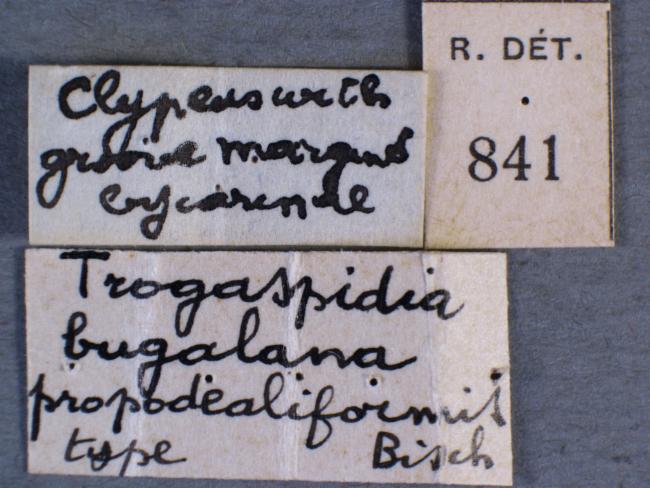 Clypeus with
groove margined
by carinae
R. DÉT.
841
Trogaspidia
bugalana
propodealiformis
type Bisch